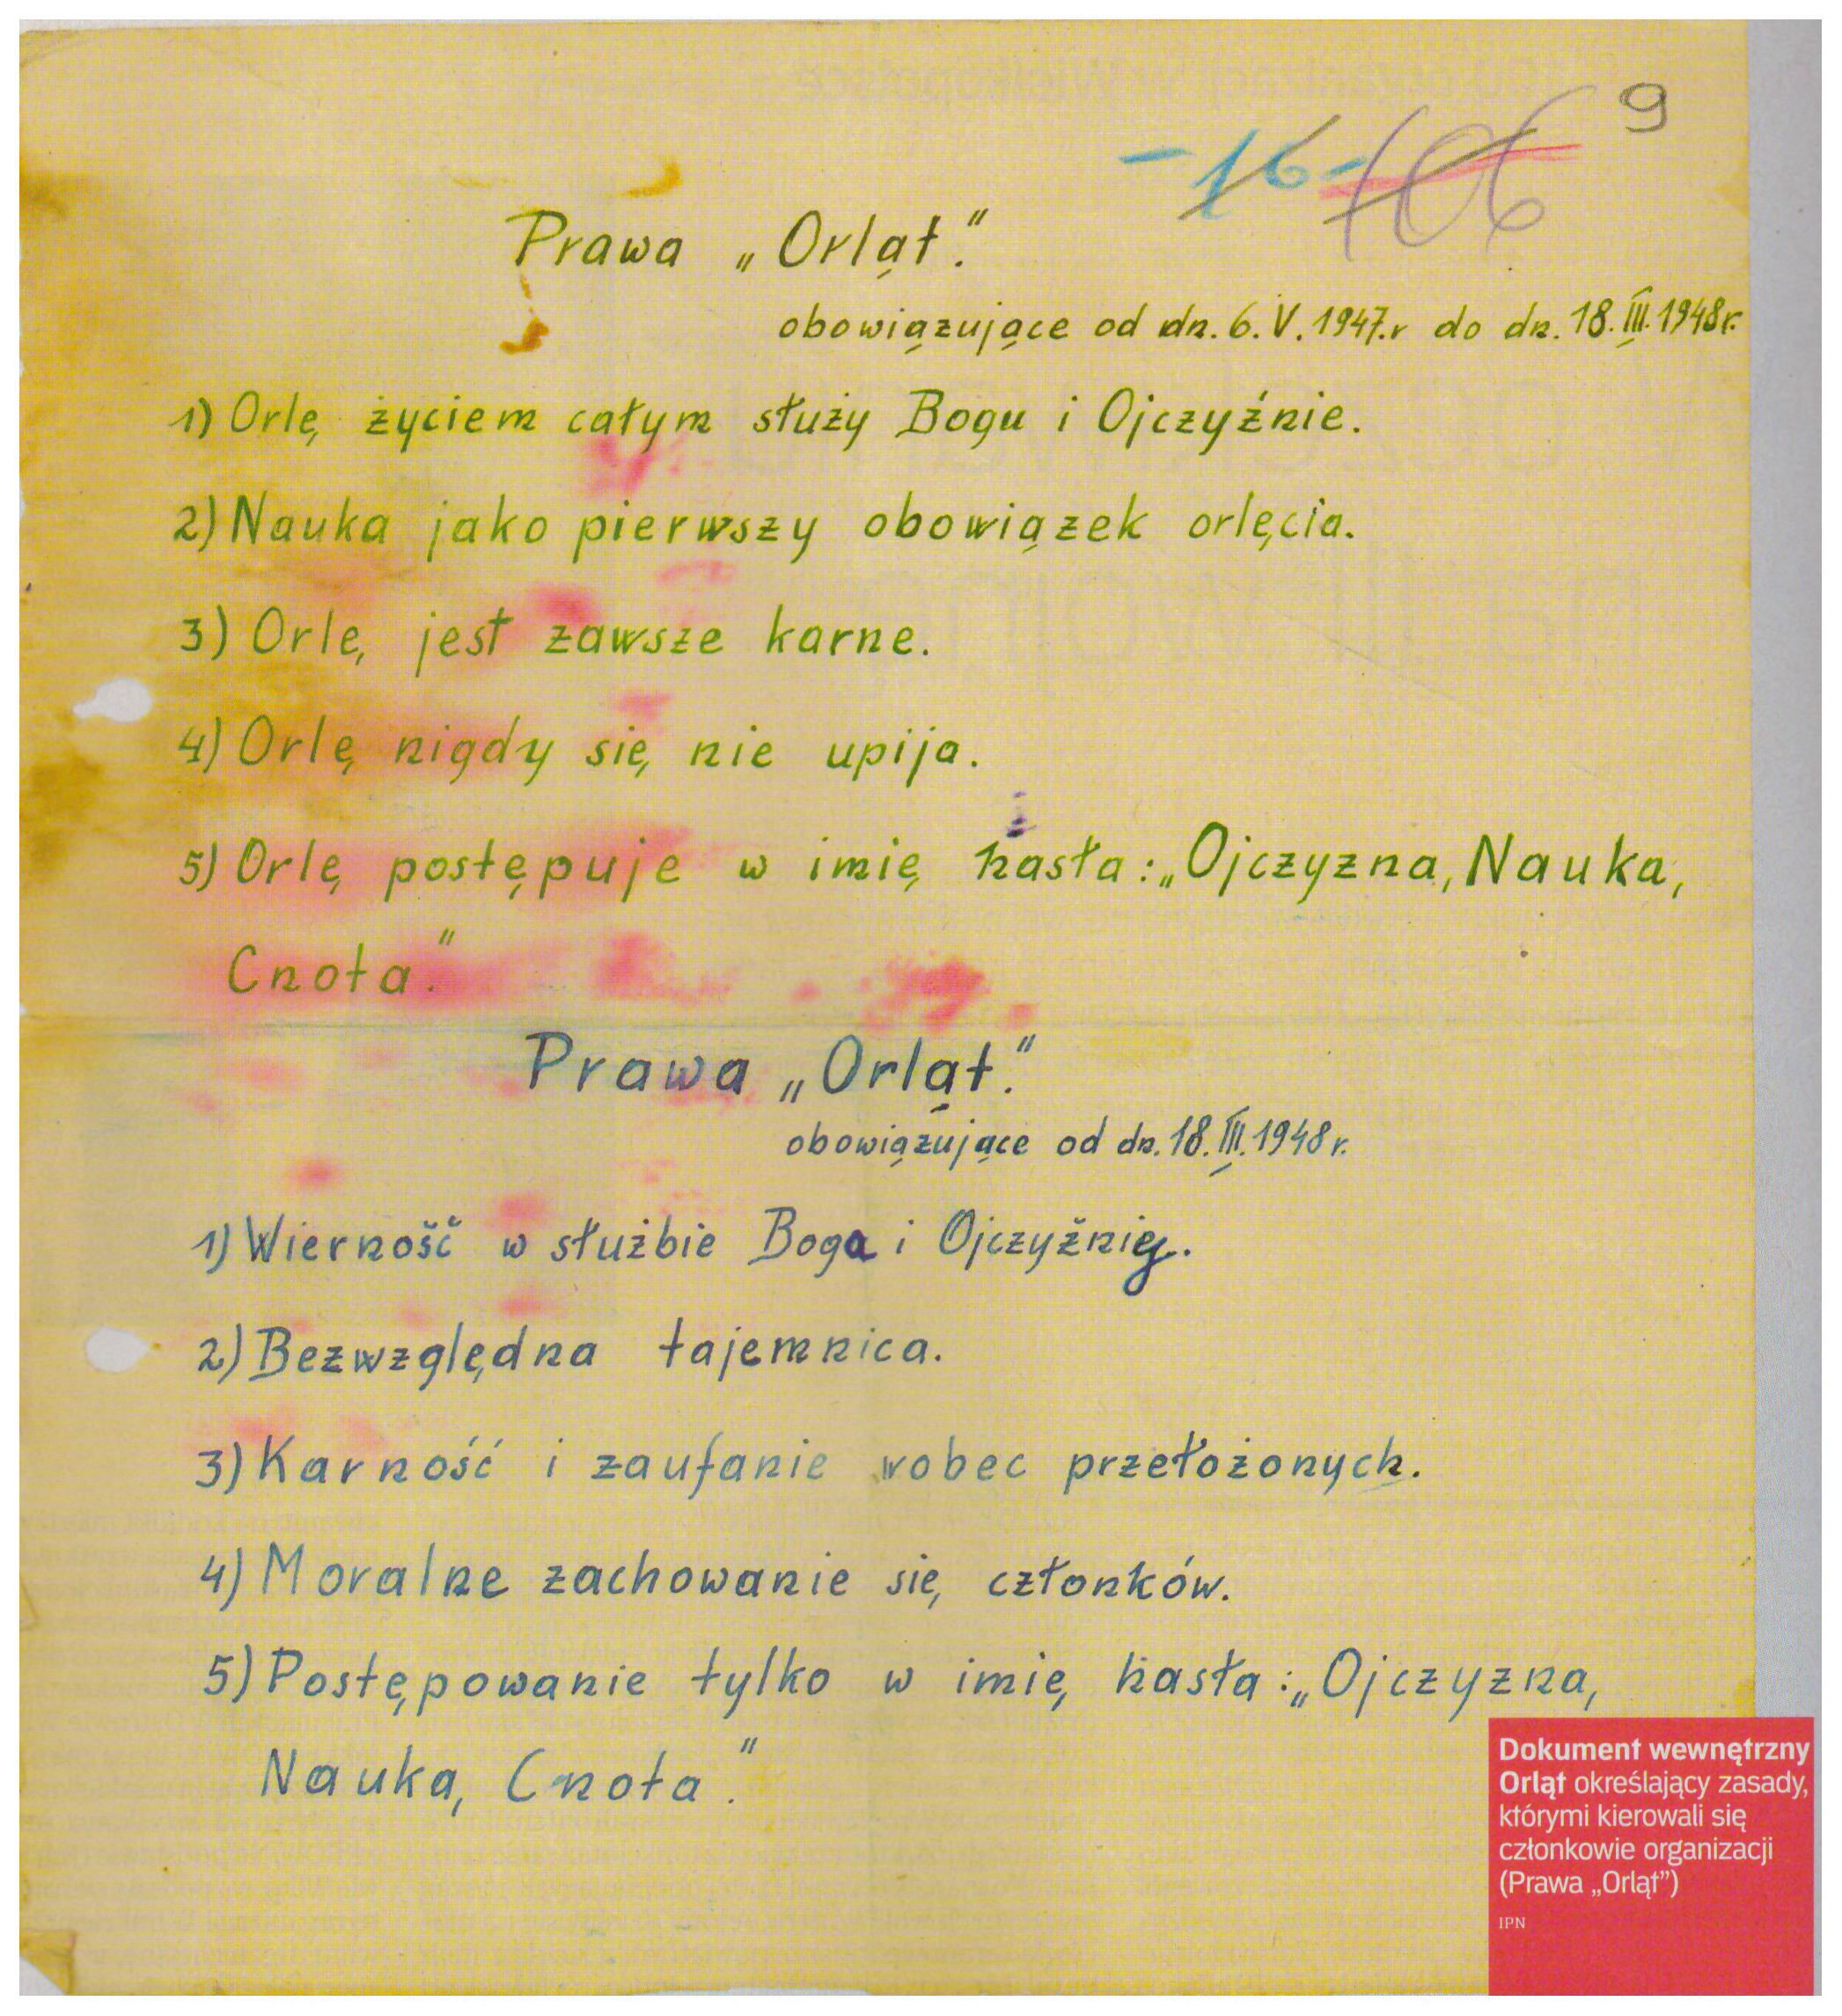 9
-16-
106
Prawa „Orląt."
obowiązujące od dn. 6. V. 1947.r do dn. 18. III. 1948r.
1) Orlę życiem całym służy Bogu i Ojczyźnie.
2) Nauka jako pierwszy obowiązek orlęcia.
3) Orlę jest zawsze karne.
4) Orlę nigdy się nie upija.
5) Orlę postępuje w imię hasła: „Ojczyzna, Nauka,
Cnota."
Prawa „Orląt."
obowiązujące od dn. 18. III. 1948 r.
1) Wierność w służbie Boga i Ojczyźniy.
2) Bezwzględna tajemnica.
3) Karność i zaufanie wobec przełożonych.
4) Moralne zachowanie się członków.
5) Postępowanie tylko w imię hasła: „Ojczyzna,
Nauka, Cnota".
Dokument wewnętrzny
Orląt określający zasady,
którymi kierowali się
członkowie organizacji
(Prawa „Orląt")
IPN